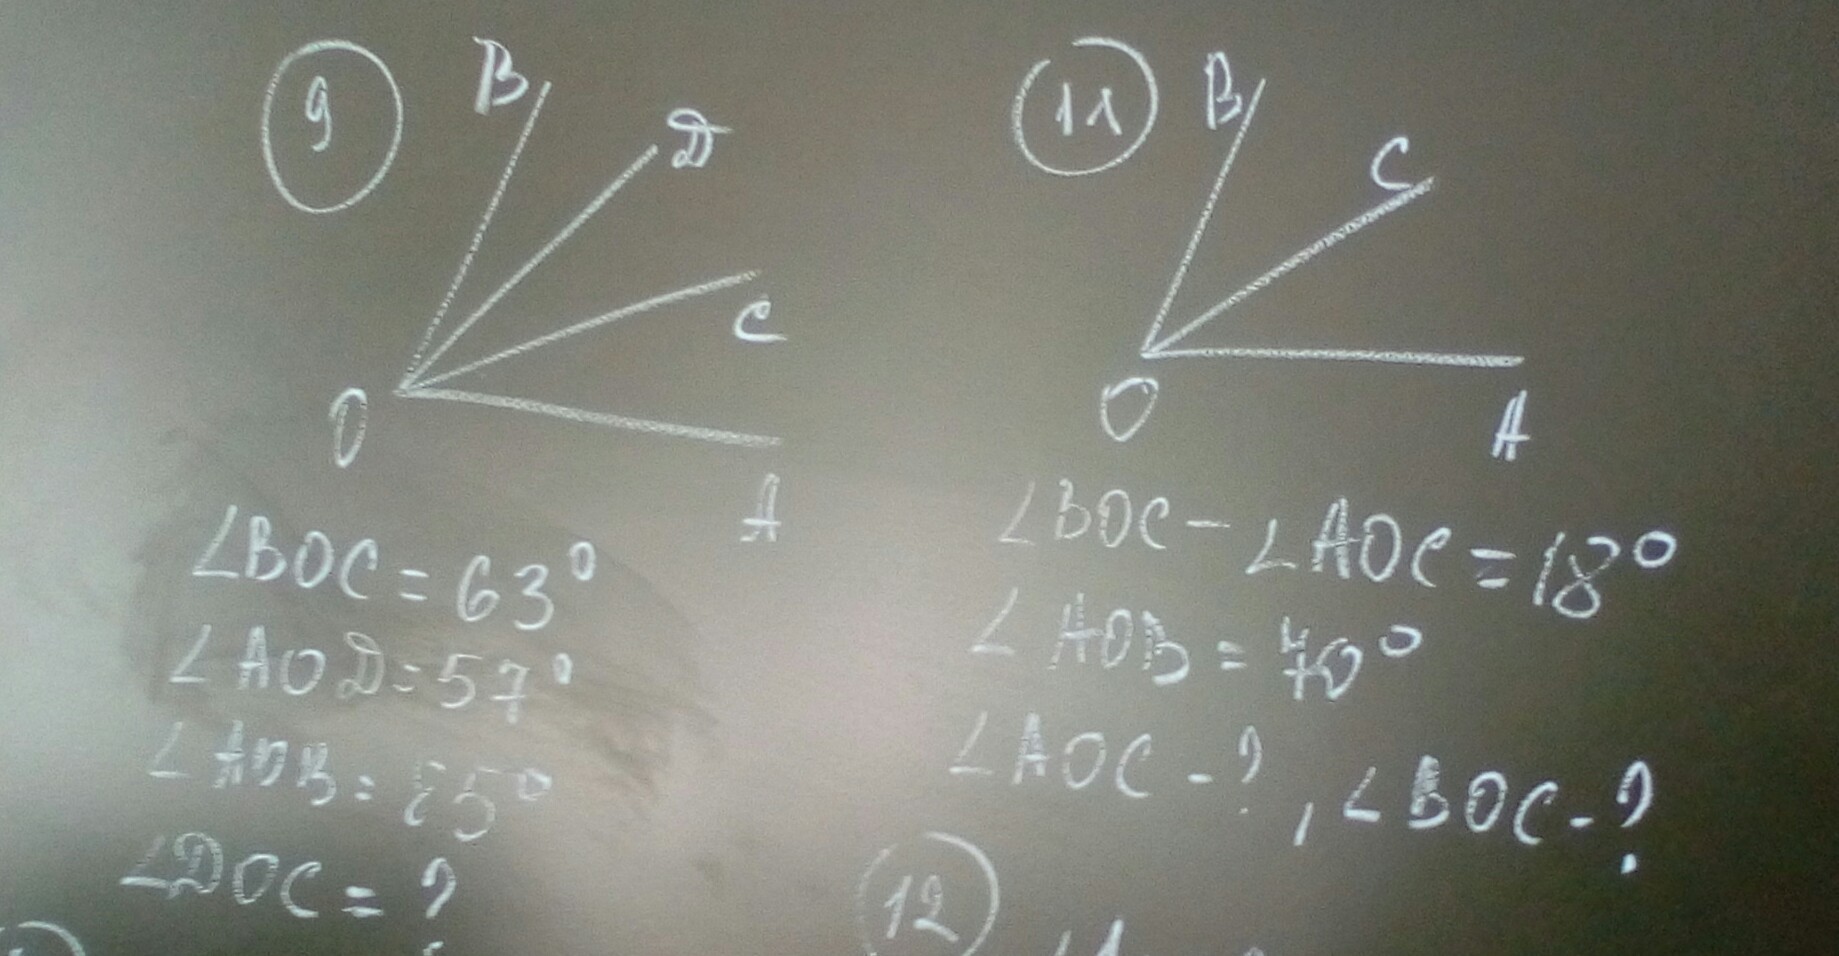 9
B
D
C
O
A
∠BOC = 63°
∠AOD = 57°
∠AOB = 85°
∠DOC = ?
11
B
C
O
A
∠BOC - ∠AOC = 18°
∠AOB = 70°
∠AOC - ?, ∠BOC - ?
12